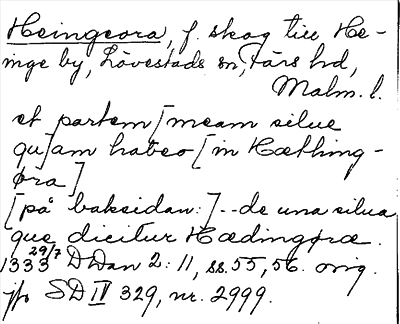 Heingeøra, f. skog till He-
inge by, Lövestads sn, Färs hd,
Malm. l.
et partem [meam silue
qu]am habeo [in Hæthing-
øra]
[på baksidan:] -- de una silua
que dicitur Hædingøræ.
1333 29/7 DDan 2: 11, ss. 55, 56. orig.
jfr SD IV 329, nr. 2999.